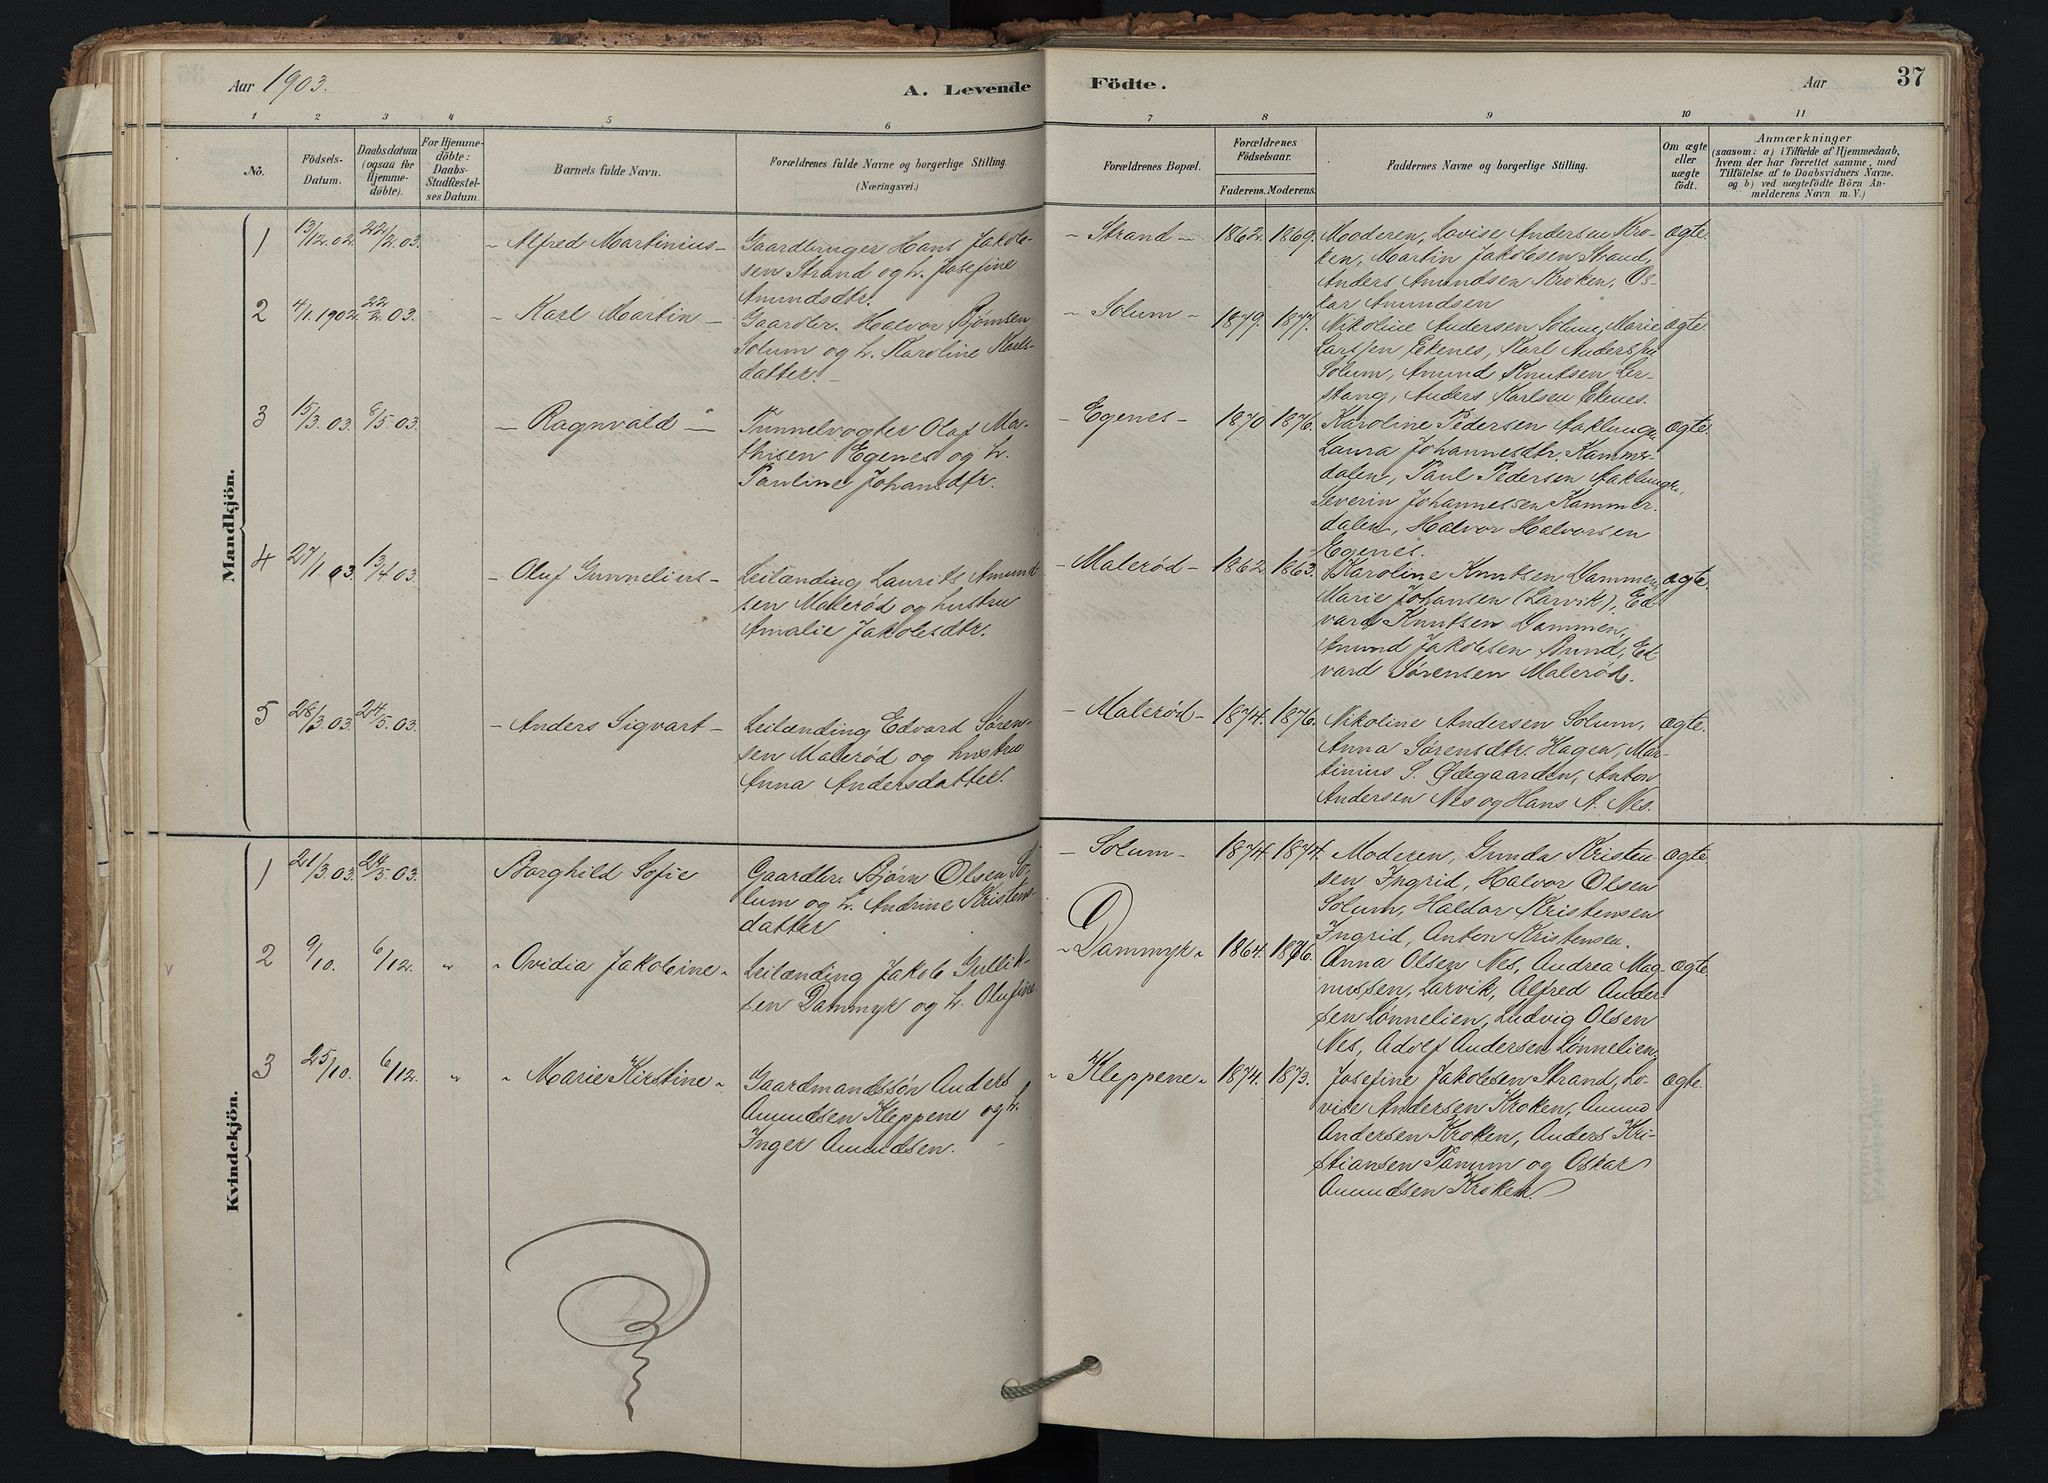 Aar 1903.
A. Levende
Födte.
Aar
37
1 2 3 4 5 6 7 8 9 10 11
No.
Födsels-
Datum.
Daabsdatum
(ogsaa for
Hjemme-
döbte).
For Hjemme-
döbte:
Daabs-
Stadfæstel-
ses Datum.
Barnets fulde Navn.
Forældrenes fulde Navne og borgerlige Stilling.
(Næringsvei.)
Forældrenes Bopæl.
Forældrenes
Födselsaar.
Faderens. Moderens.
Faddernes Navne og borgerlige Stilling.
Om ægte
eller
uægte
födt.
Anmærkninger
(saasom: a) i Tilfælde af Hjemmedaab,
hvem der har forrettet samme, med
Tilföielse af to Daabsvidners Navne,
og b) ved uægtefödte Börn An-
melderens Navn m. V.)
Mandkjön.
1 13/12.02. 22/2.03. - Alfred Martinius - Gaardbruger Hans Jakob-
sen Strand og h. Josefine
Amundsdtr.
- Strand - 1862. 1869. Moderen, Lovise Andersen Kro- ægte.
ken, Martin Jakobsen Strand,
Anders Amundsen Kroken, Os-
kar Amundsen
2 4/1.1902. 22/2.03. - Karl Martin - Gaardbr. Halvor Bjørnsen
Solum og h. Karoline Karls-
datter. -
- Solum - 1879. 1877. Nikoline Andersen Solum, Marie ægte.
Larssen Ekenes, Karl Anderssen
Solum, Amund Knutsen Ler-
stang, Anders Karlsen Ekenes.
3 15/3.03. 8/5.03. - Ragnvald - Tunnelvogter Olaf Ma-
thisen Egenes og h.
Pauline Johansdtr.
- Egenes - 1870 1876. Karoline Pedersen Aaklungen, ægte.
Laura Johannesdtr. Kammer-
dalen, Paul Pedersen Aaklungen,
Severin Johannessen Kammer-
dalen, Halvor Halvorsen
Egenes.
4 27/1.03. 13/4.03. - Oluf Gunnelius - Leilænding Laurits Amund-
sen Malerød og hustru
Amalie Jakobsdtr.
- Malerød - 1862 1863. Karoline Knutsen Dammen, ægte.
Marie Johansen (Larvik), Ed-
vard Knutsen Dammen,
Amund Jakobsen Bund, Ed-
vard Sørensen Malerød.
5 28/3.03. 24/5.03. - Anders Sigvart - Leilænding Edvard Søren-
sen Malerød og hustru
Anna Andersdatter.
- Malerød - 1874. 1876. Nikoline Andersen Solum, ægte.
Anna Sørensdtr. Hagen, Mar-
tinius S. Ødegaarden, Anton
Andersen Nes og Hans A. Nes.
Kvindekjön.
1 21/3.03. 24/5.03. Borghild Sofie Gaardbr. Bjørn Olsen So-
lum og h. Andrine Kristens-
datter
- Solum - 1874. 1874. Moderen, Gunda Kristen- ægte
sen Ingrid, Halvor Olsen
Solum, Haldor Kristensen
Ingrid, Anton Kristensen.
2 9/10. 6/12. " " Ovidia Jakobine " Leilænding Jakob Gullik-
sen Dammyr og h. Olufine
" Dammyr " 1864. 1876. Anna Olsen Nes, Andrea Mag- ægte
nussen, Larvik, Alfred Ander-
sen Lønnelien, Ludvig Olsen
Nes, Adolf Andersen Lønnelien.
3 25/10. 6/12. " " Marie Kirstine " Gaardmandssøn Anders
Amundsen Kleppene og h.
Inger Amundsen. -
" Kleppene " 1874. 1873. Josefine Jakobsen Strand, Lo- ægte.
vise Andersen Kroken, Amund
Andersen Kroken, Anders Kri-
stiansen Panum og Oskar
Amundsen Kroken.